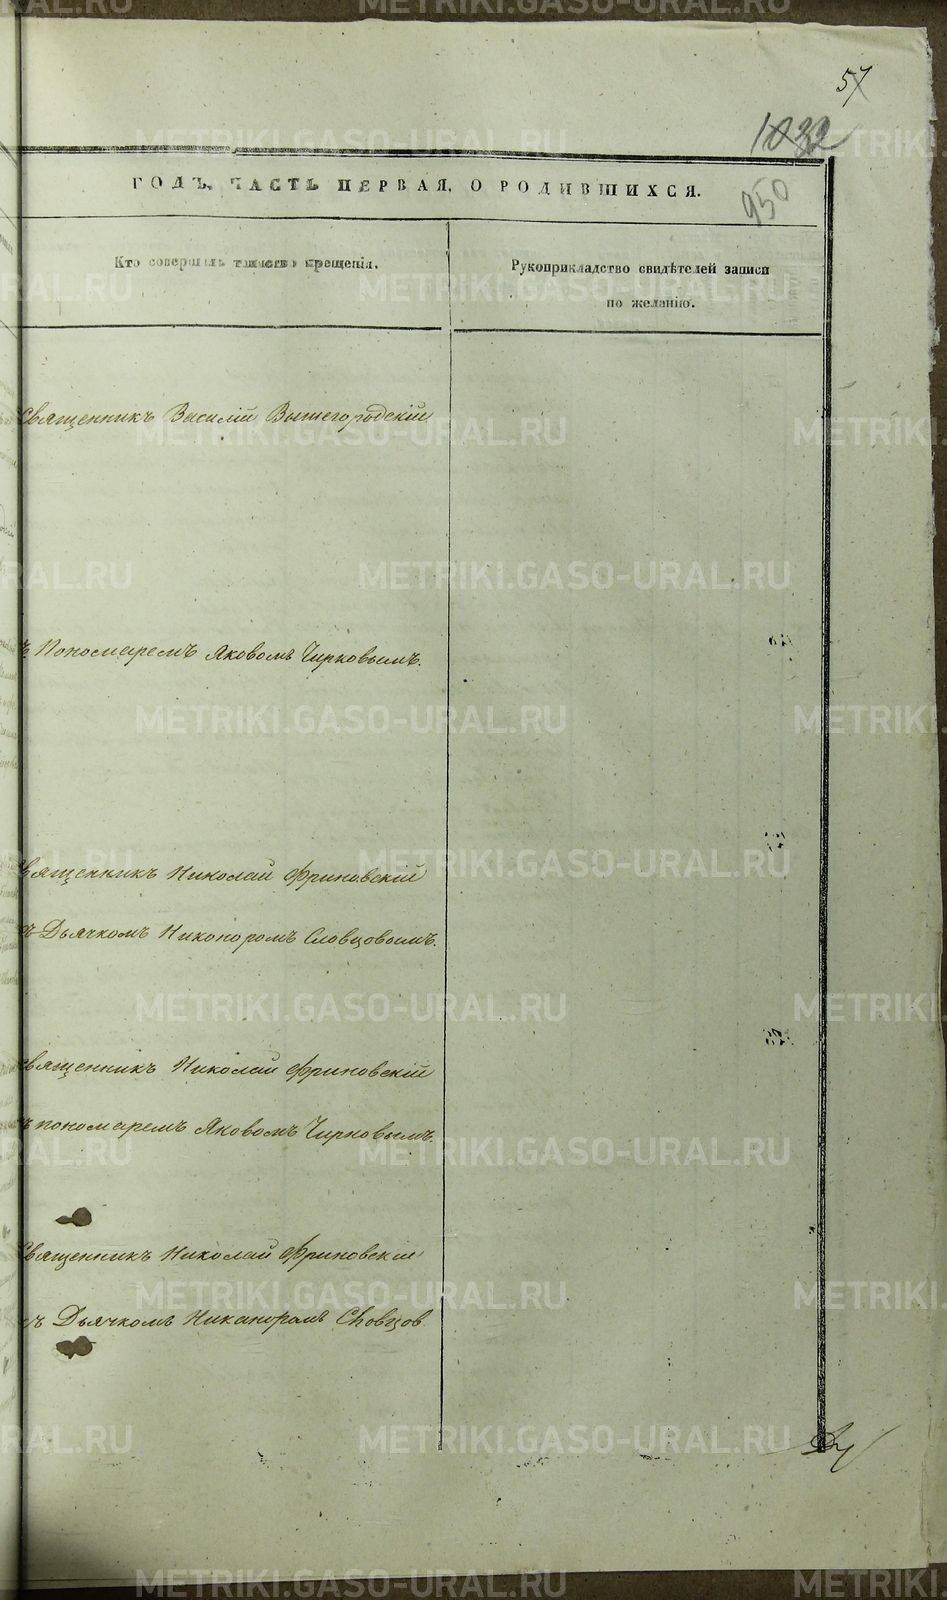 57
1032
950
ГОДЪ, ЧАСТЬ ПЕРВАЯ, О РОДИВШИХСЯ.
Кто совершалъ таинство крещенія.
Рукоприкладство свидѣтелей записи
по желанію.
Священникъ Василій Вышегородскій
съ Пономаремъ Яковомъ Чирковымъ.
Священникъ Николай Фриновскій
съ Дьячкомъ Никоноромъ Словцовымъ.
Священникъ Николай Фриновскій
съ пономаремъ Яковомъ Чирковымъ.
Священникъ Николай Фриновскій
съ Дьячкомъ Никаноромъ Словцов
METRIKI.GASO-URAL.RU